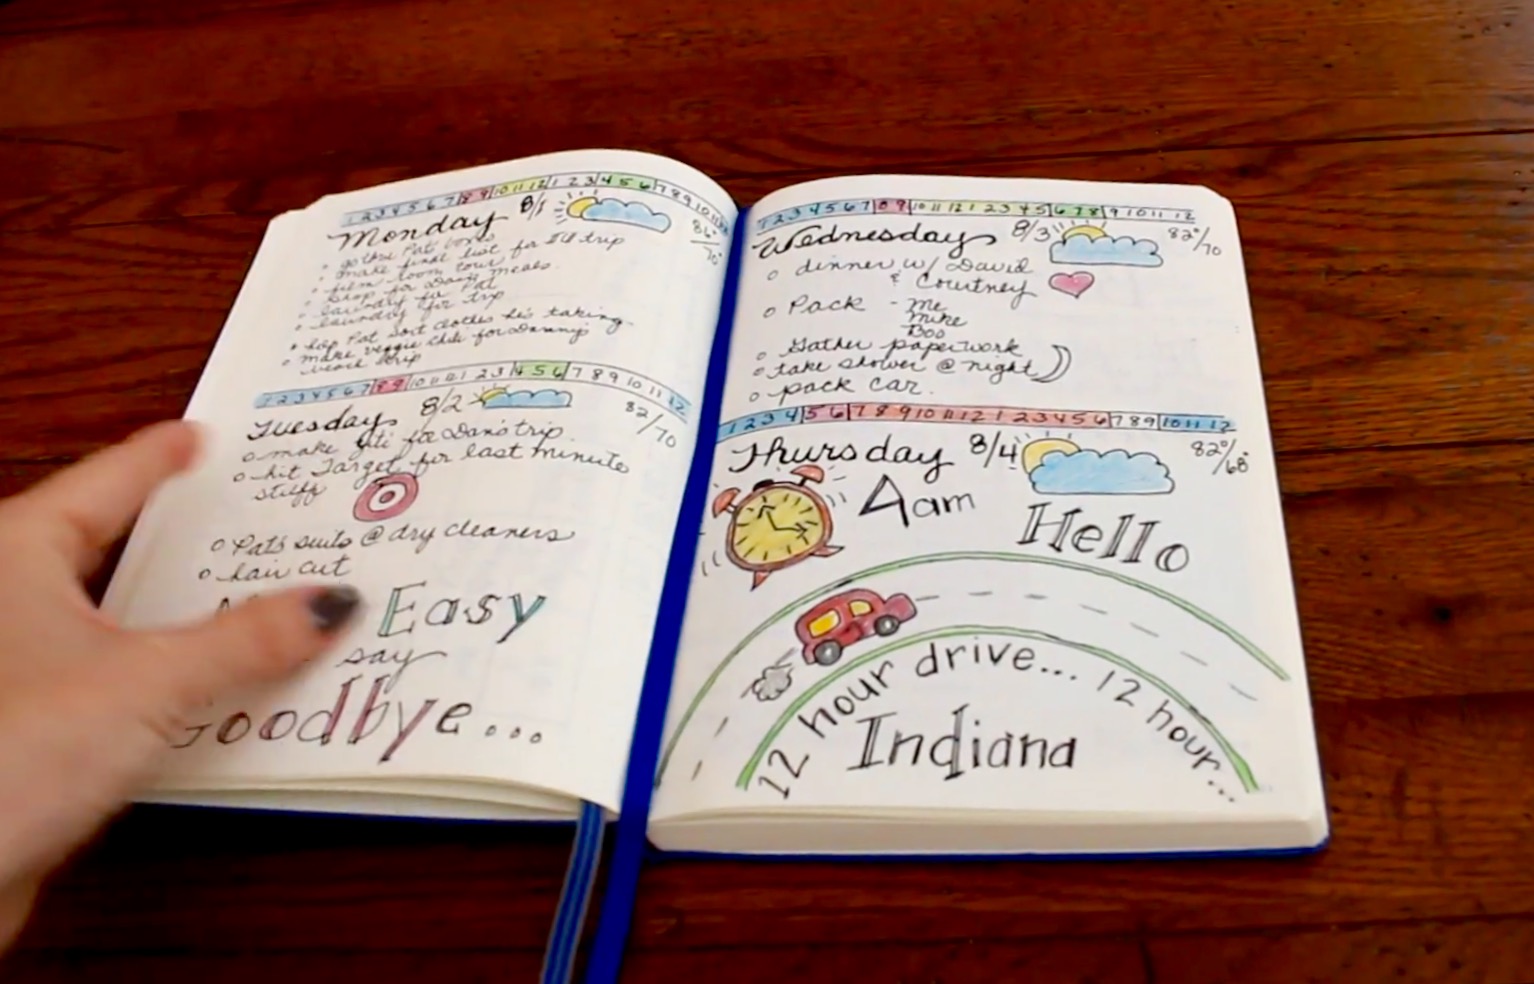 1 2 3 4 5 6 7 8 9 10 11 12 1 2 3 4 5 6 7 8 9 10 11 12
Monday 8/1 86°/70°
make final list for IU trip
film room tour
shop for Dan's meals
laundry for Pat
laundry for trip
help Pat sort clothes he's taking
make veggie chili for Danny's
work trip
1 2 3 4 5 6 7 8 9 10 11 12 1 2 3 4 5 6 7 8 9 10 11 12
Tuesday 8/2 82/70
make ziti for Dan's trip
hit Target for last minute
stuff
Pat's suits @ dry cleaners
hair cut
Easy
say
Goodbye...
1 2 3 4 5 6 7 8 9 10 11 12 1 2 3 4 5 6 7 8 9 10 11 12
Wednesday 8/3 82°/70
dinner w/ David
& Courtney
Pack - Me
Mike
Boo
Gather paperwork
take shower @ night
pack car.
1 2 3 4 5 6 7 8 9 10 11 12 1 2 3 4 5 6 7 8 9 10 11 12
Thursday 8/4 82°/68°
4am
Hello
12 hour drive... 12 hour...
Indiana